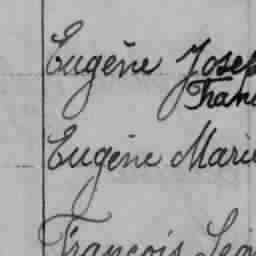 Eugène Josep
Fran
Eugène Marie
François Léo